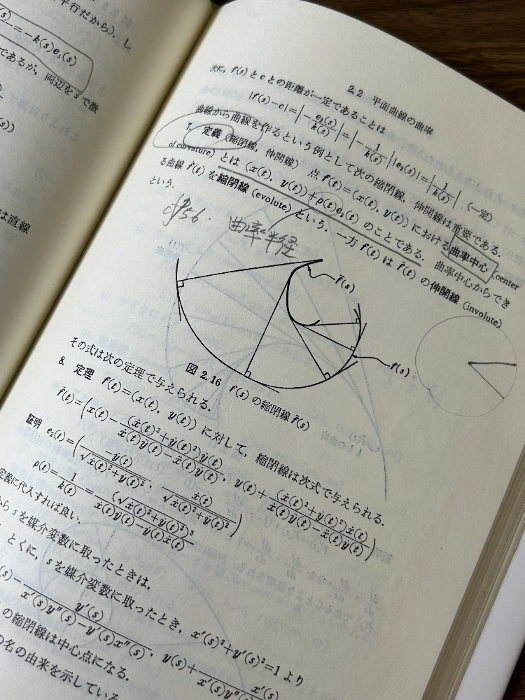 平行だから). し
=-k(s)e₁(s)
であるが, 両辺をsで微
は直線
2.2 平面曲線の曲率
次に, f(s)とcとの距離が一定であることは
|f(s)-c|=|-e₂(s)/k(s)|=|-1/k(s)||e₂(s)|=|1/k(s)| (一定)
曲線から曲線を作るという例として次の縮閉線, 伸開線は重要である.
7. 定義 (縮閉線, 伸開線) 点 f(t)=(x(t), y(t)) における曲率中心 (center
of curvature) とは (x(t), y(t))+ρ(t)e₂(t) のことである. 曲率中心からでき
る曲線 f̃(t) を縮閉線 (evolute) という. 一方 f(t) は f̃(t) の伸開線 (involute)
という.
曲率半径
f̃(s)
f(s)
図 2.16 f(s) の縮閉線 f̃(s)
その式は次の定理で与えられる.
8. 定理 f(t)=(x(t), y(t)) に対して, 縮閉線は次式で与えられる.
f̃(t)=(x(t)-(ẋ(t)²+ẏ(t)²)ẏ(t)/(ẋ(t)ÿ(t)-ẍ(t)ẏ(t)), y(t)+(ẋ(t)²+ẏ(t)²)ẋ(t)/(ẋ(t)ÿ(t)-ẍ(t)ẏ(t)))
証明 e₂(t)=(-ẏ(t)/√(ẋ(t)²+ẏ(t)²), ẋ(t)/√(ẋ(t)²+ẏ(t)²))
ρ(t)=1/k(t)=(√(ẋ(t)²+ẏ(t)²))³/(ẋ(t)ÿ(t)-ẏ(t)ẍ(t))
定義に代入すれば良い.
からsを媒介変数に取ったときは,
とくに, sを媒介変数に取ったとき, x′(s)²+y′(s)²=1 より
(s)-y′(s)/(x′(s)y″(s)-y′(s)x″(s)), y(s)+x′(s)/x′(s)y″(s)
の縮閉線は中心点になる.
の名の由来を示している